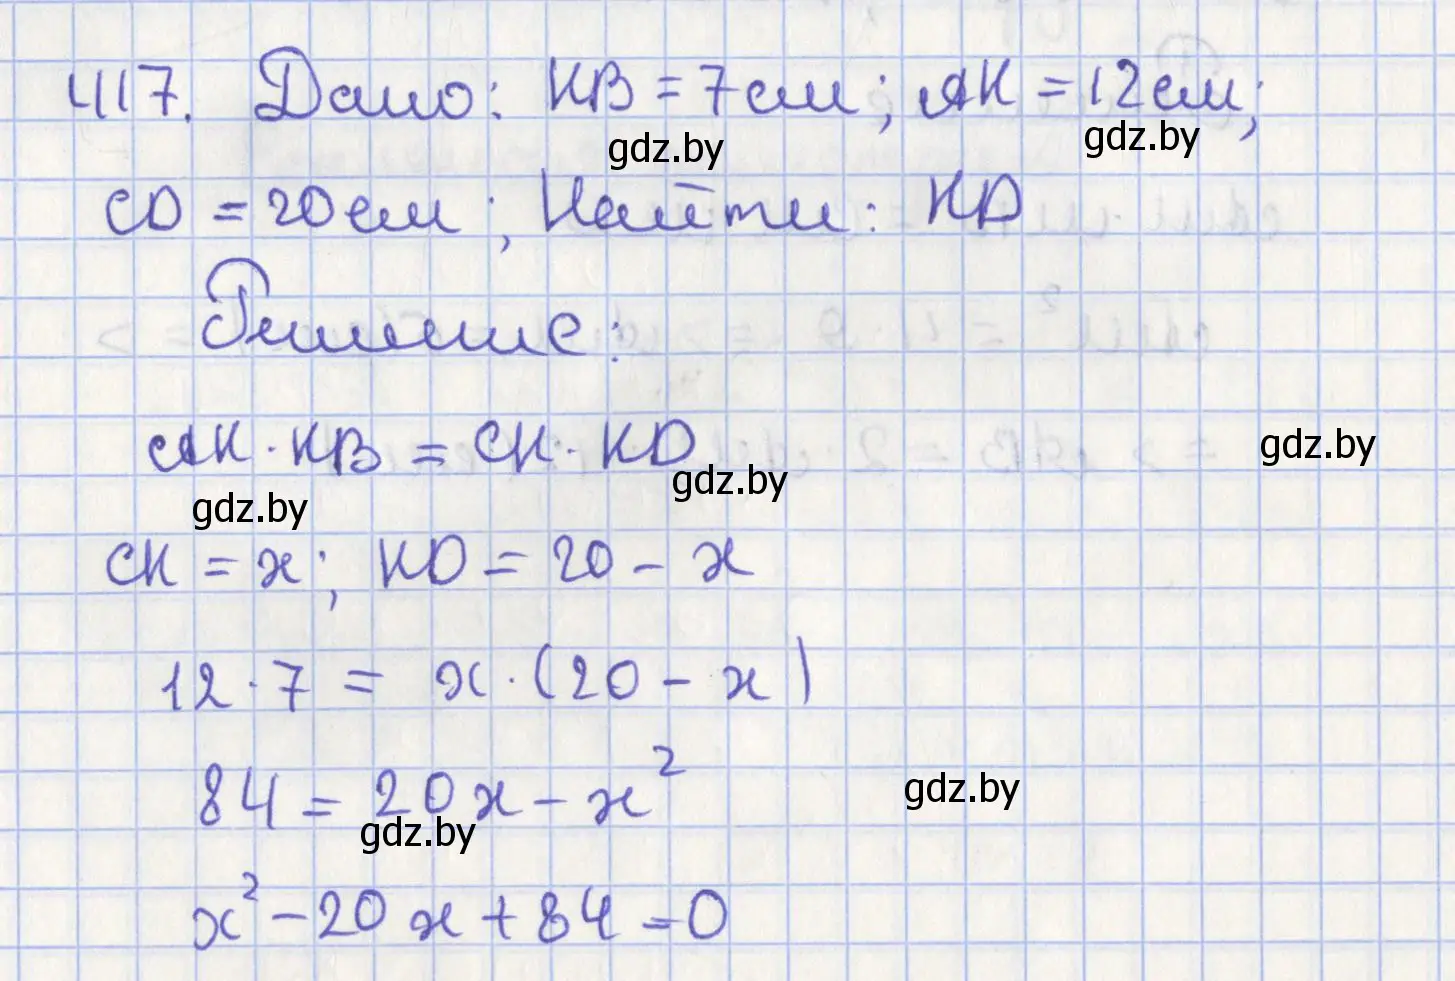 417. Дано: KB = 7см; AK = 12см;
gdz.by
gdz.by
CD = 20см; Найти: KD
Решение:
AK · KB = CK · KD
gdz.by
gdz.by
gdz.by
CK = x; KD = 20 - x
12 · 7 = x · (20 - x)
84 = 20x - x²
gdz.by
gdz.by
x² - 20x + 84 = 0